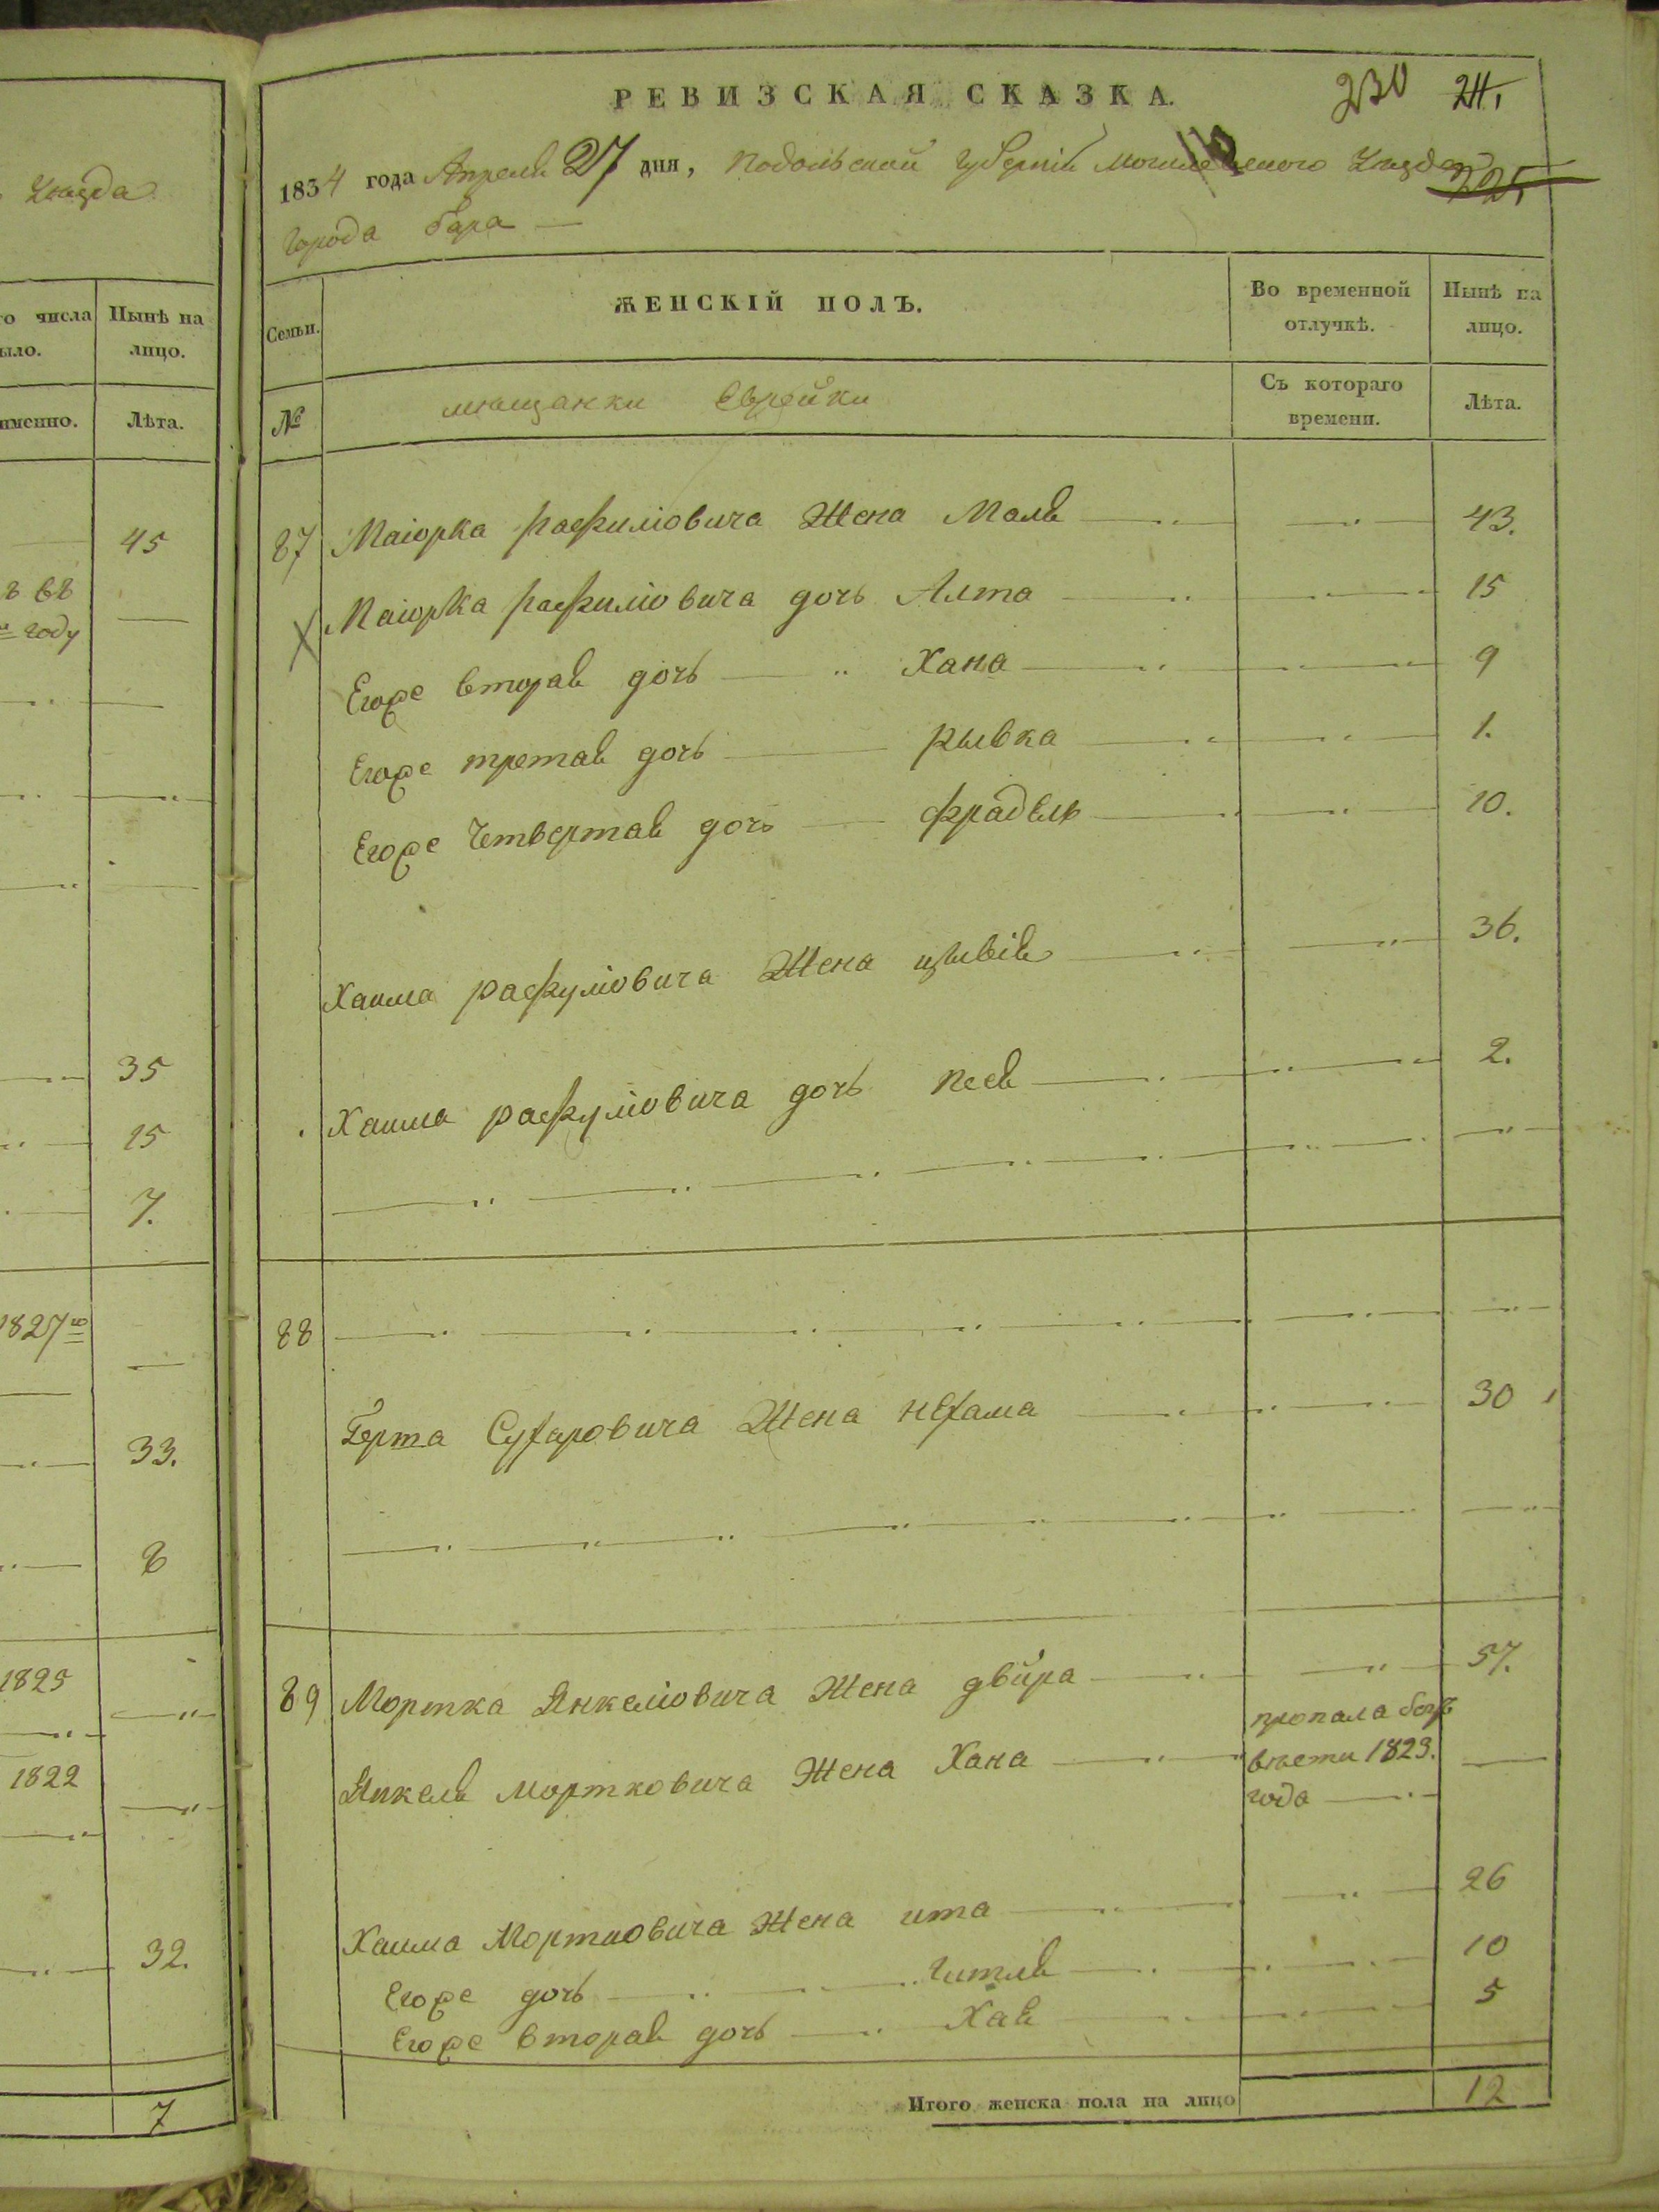 Уѣзда
го числа
Нынѣ на
ыло.
лицо.
именно.
Лѣта.
45
въ
году
35
15
7.
1827го
33.
8
1825
1822
32.
7
РЕВИЗСКАЯ СКАЗКА.
230 211.
1834 года Апреля 27 дня, Подольской губерніи Могилевского Уѣзда
225.
Города Бара
Семьи. ЖЕНСКІЙ ПОЛЪ. Во временной отлучкѣ. Нынѣ на лицо.
№ мѣщанки Еврейки Съ котораго времени. Лѣта.
87 Маіорка Рафуліовича Жена Маля 43.
Маіорка Рафуліовича дочь Алта 15
Егоже вторая дочь Хана 9
Егоже третая дочь Рывка 1.
Егоже Четвертая дочь Фрадыля 10.
Хаима Рафуліовича Жена Цывія 36.
Хаима Рафуліовича дочь Пея 2.
88
Герта Сухаровича Жена Нехама 30
89 Мортка Янкеліовича Жена двйра 57.
Янкеля Мортковича Жена Хана пропала безъ
вѣсти 1823.
года
Хаима Мортковича Жена ита 26
Егоже дочь Гитля 10
Егоже вторая дочь Хая 5
Итого женска пола на лицо 12